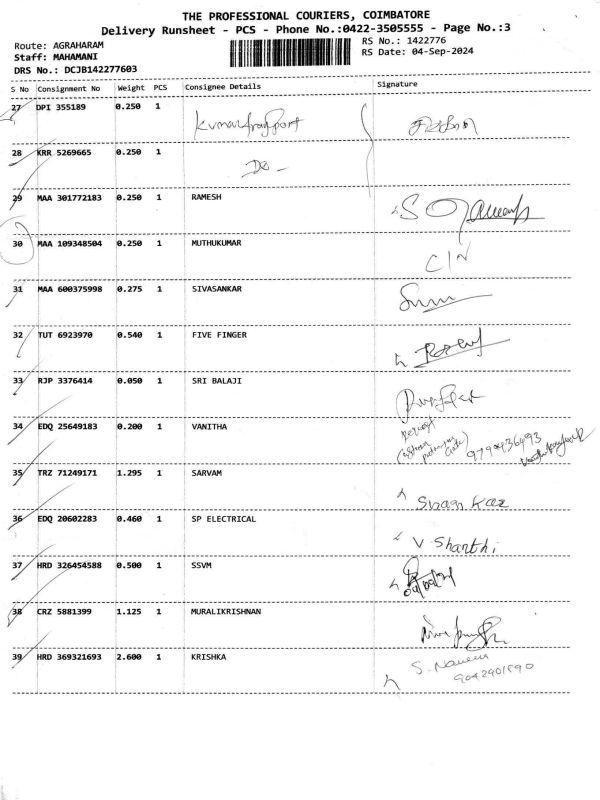 THE PROFESSIONAL COURIERS, COIMBATORE
Delivery Runsheet - PCS - Phone No.:0422-3505555 - Page No.:3
Route: AGRAHARAM
RS No.: 1422776
Staff: MAHAMANI
RS Date: 04-Sep-2024
DRS No.: DCJB142277603
S No Consignment No Weight PCS Consignee Details Signature
27 DPI 355189 0.250 1
28 KRR 5269665 0.250 1 Do -
29 MAA 301772183 0.250 1 RAMESH
30 MAA 109348504 0.250 1 MUTHUKUMAR C/N
31 MAA 600375998 0.275 1 SIVASANKAR
32 TUT 6923970 0.540 1 FIVE FINGER
33 RJP 3376414 0.050 1 SRI BALAJI
34 EDQ 25649183 0.200 1 VANITHA
35 TRZ 71249171 1.295 1 SARVAM
36 EDQ 20602283 0.460 1 SP ELECTRICAL V. Shanthi
37 HRD 326454588 0.500 1 SSVM
38 CRZ 5881399 1.125 1 MURALIKRISHNAN
39 HRD 369321693 2.600 1 KRISHKA